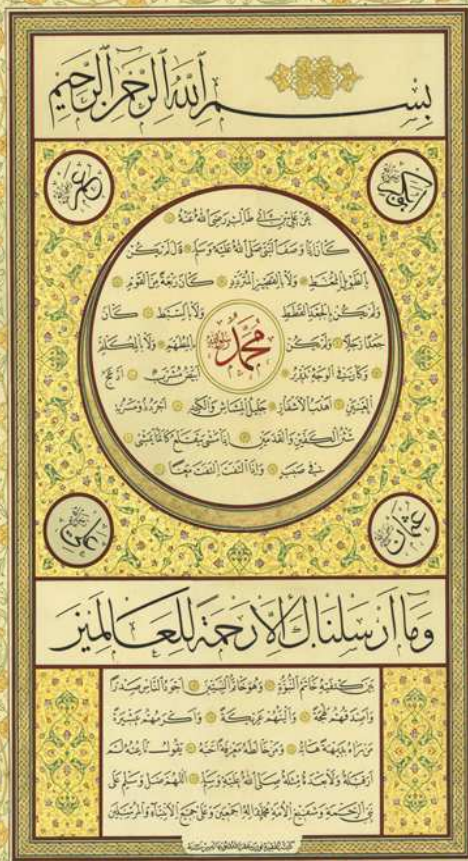 بسم الله الرحمن الرحيم
ابوبكر رضي الله عنه
عمر رضي الله عنه
عن علي بن ابي طالب رضي الله عنه
كان اذا وصف النبي صلى الله عليه وسلم قال لم يكن
بالطويل الممغط ولا بالقصير المتردد كان ربعة من القوم
ولم يكن بالجعد القطط ولا بالسبط كان
جعدا رجلا ولم يكن بالمطهم ولا بالمكلثم
محمد
وكان في الوجه تدوير ابيض مشرب ادعج
العينين اهدب الاشفار جليل المشاش والكتد اجرد ذو مسربة
شثن الكفين والقدمين اذا مشى يتقلع كانما يمشي
في صبب واذا التفت التفت معا
عثمان رضي الله عنه
علي رضي الله عنه
وما ارسلناك الا رحمة للعالمين
بين كتفيه خاتم النبوة وهو خاتم النبيين اجود الناس صدرا
واصدقهم لهجة والينهم عريكة واكرمهم عشيرة
من رآه بديهة هابه ومن خالطه معرفة احبه يقول ناعته لم
ار قبله ولا بعده مثله صلى الله عليه وسلم اللهم صل وسلم على
نبي الرحمة وشفيع الامة محمد واله اجمعين وعلى جميع الانبياء والمرسلين